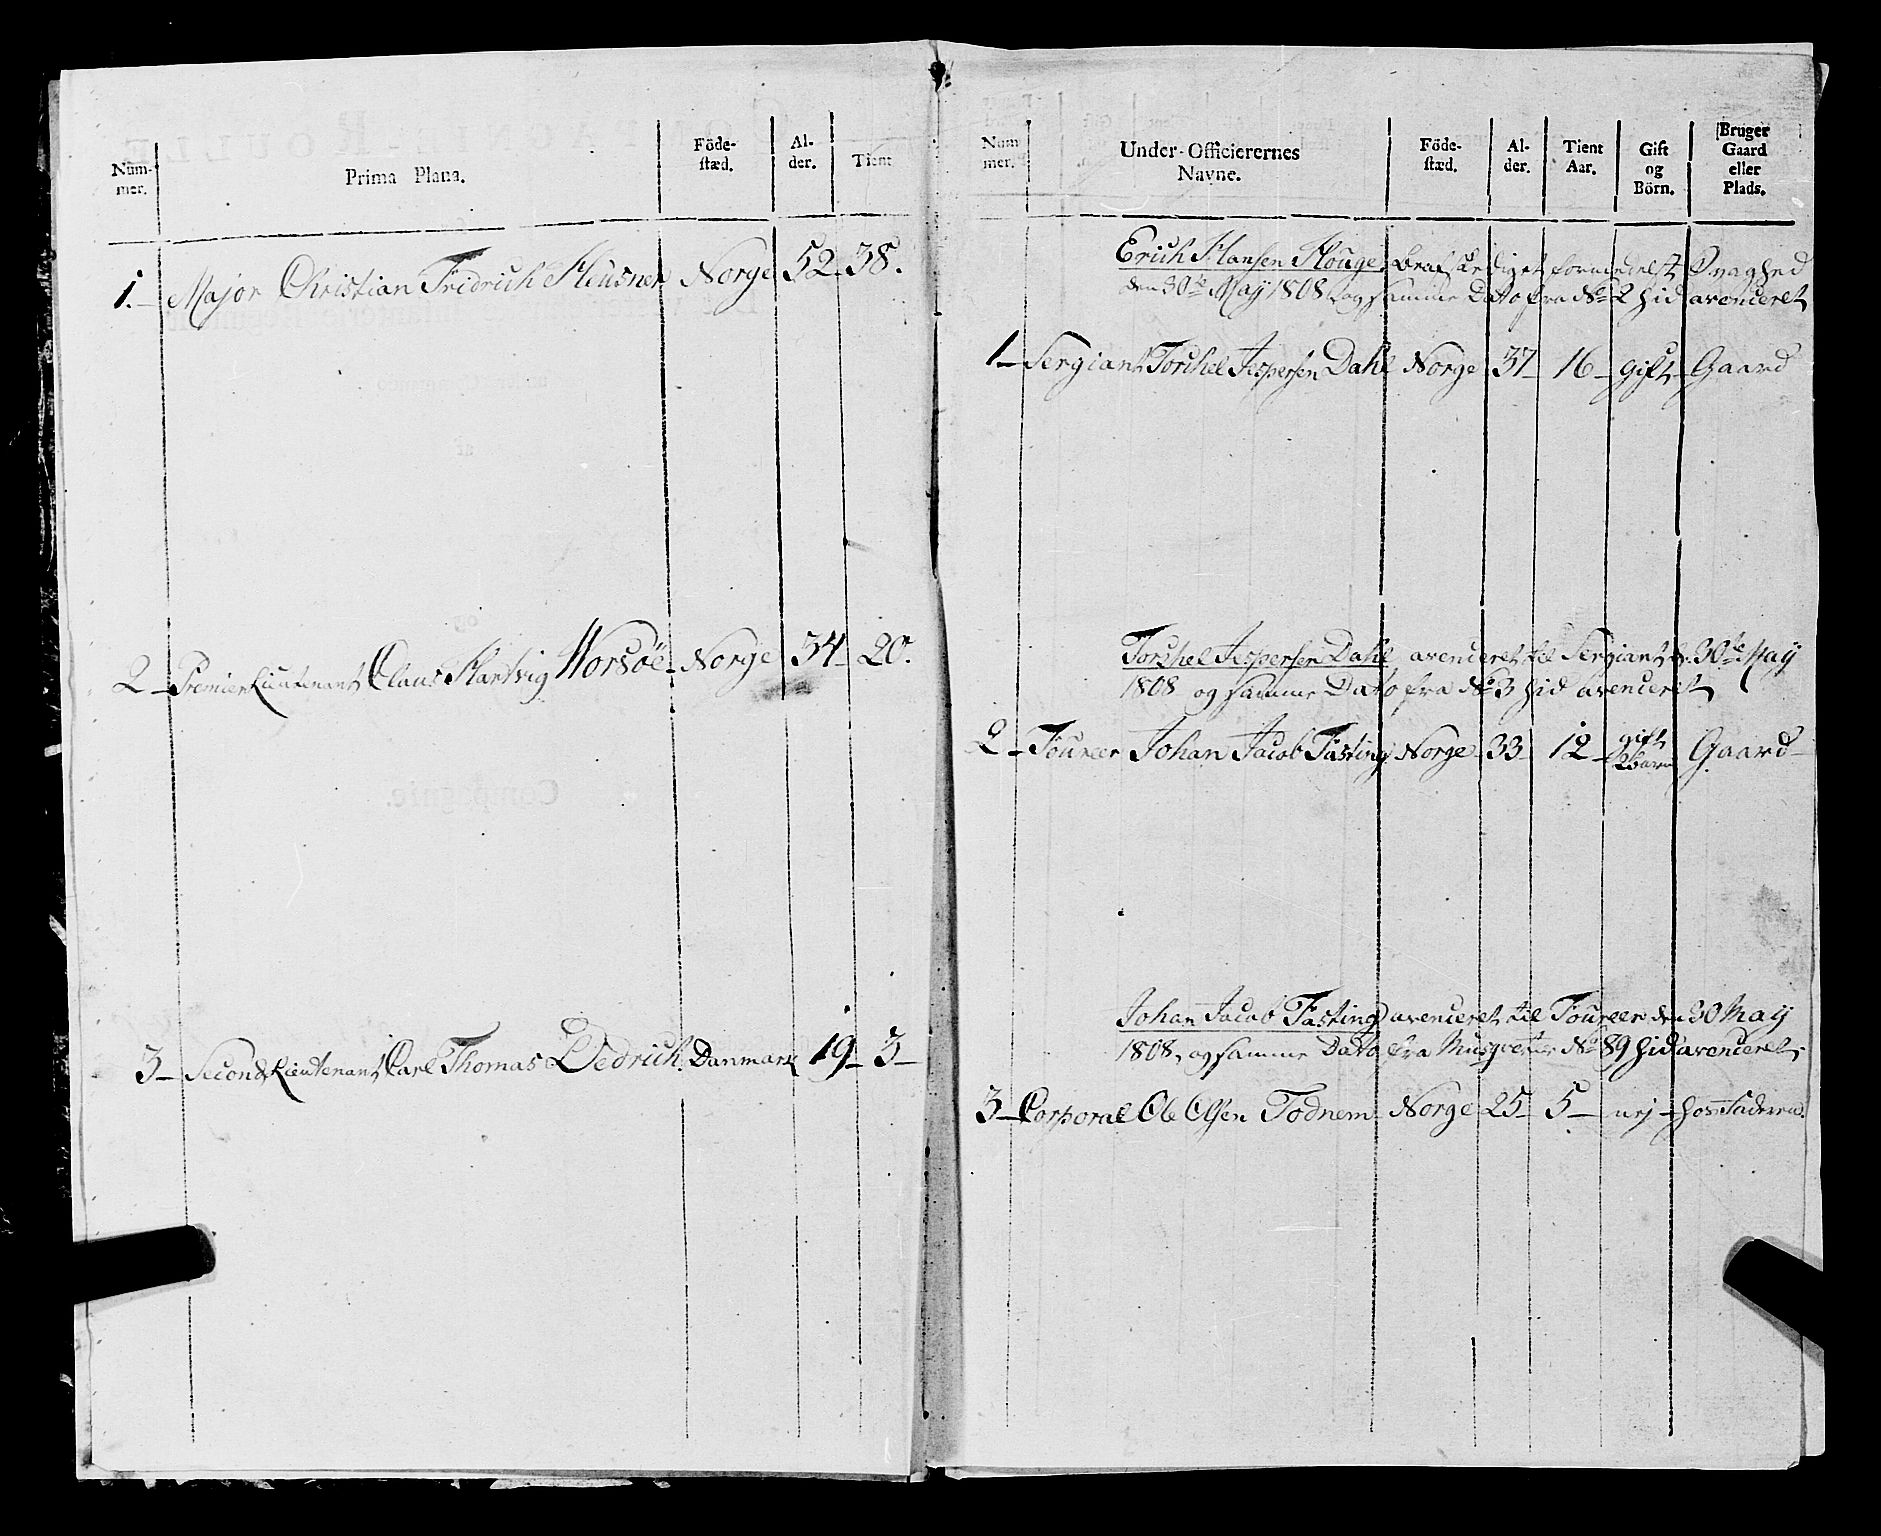 Num-
mer.
Prima Plana.
Föde-
stæd.
Al-
der.
Tient
1. Major Christian Fridrich Heusner Norge 52 38.
2 Premier Lieutenant Claus Hartvig Worsöe Norge 34 20.
3 Second Lieutenant Carl Thomas Dedrich Danmark 19 3
Num
mer.
Under-Officierernes
Navne.
Föde-
stæd.
Al-
der.
Tient
Aar.
Gift
og
Börn.
Bruger
Gaard
eller
Plads.
Erich Hansen Houge, beafskediget formedelst Svaghed
den 30te May 1808 og samme Dato fra No 2 hid avenceret
1 Sergiant Torchel Jespersen Dahl Norge 37 16 gift Gaard
Torchel Jespersen Dahl avenceret til Sergiant d. 30te May
1808 og samme Dato fra No 3 hid avenceret
2 Foureer Johan Jacob Fasting Norge 33 12 gift
2 barn Gaard
Johan Jacob Fasting avenceret til Foureer den 30 May
1808, og samme Dato fra Musqveteer No 89 hid avenceret
3 Corporal Ole Olsen Todnem Norge 25 5 nej hos Faderen.